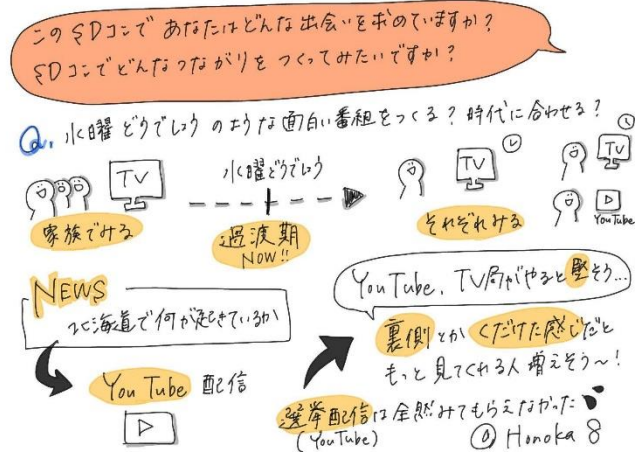 このSDコンで あなたはどんな出会いを求めていますか?
SDコンでどんなつながりを つくってみたいですか?
Q. 水曜どうでしょう のような面白い番組をつくる?時代に合わせる?
TV
水曜どうでしょう
TV
TV
YouTube
家族でみる
過渡期
NOW!!
それぞれみる
NEWS
北海道で何が起きているか
YouTube 配信
YouTube、TV局がやると堅そう…
裏側とか くだけた感じだと
もっと見てくれる人増えそう〜!
選挙配信は全然みてもらえなかった
(YouTube)
Honoka 8